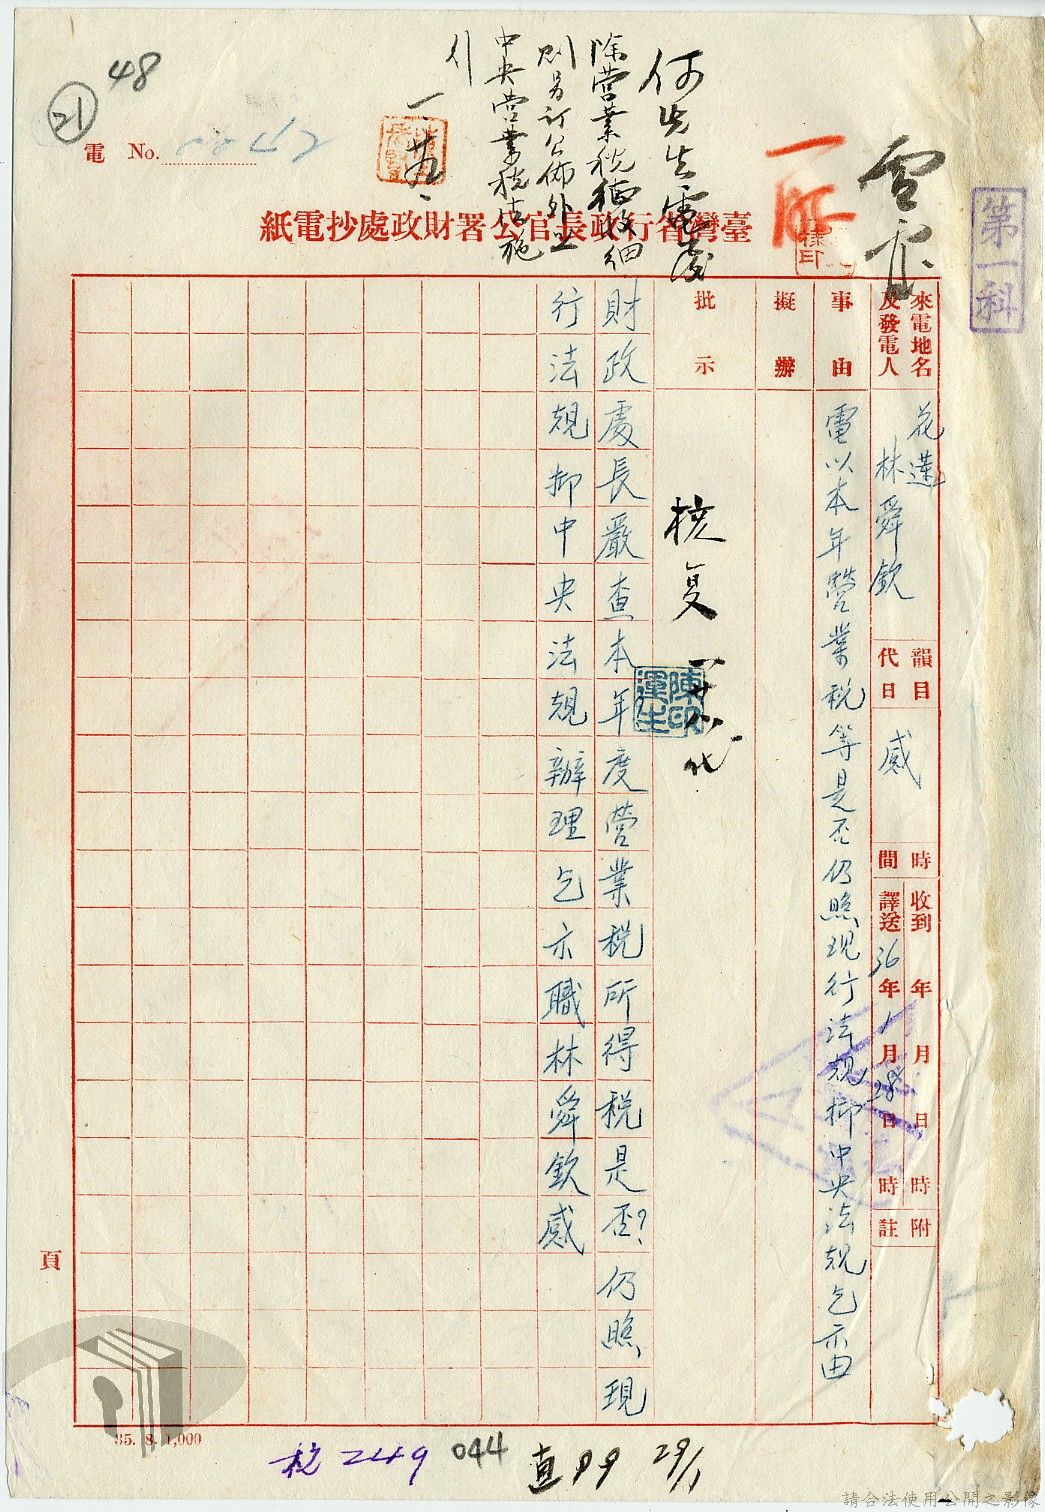 48
21
電 No.
何先生電復
除營業稅徵收細
則另訂公佈外並
中央營業稅法施
行
臺灣省行政長官公署財政處抄電紙
第一科
來電地名
及發電人
花蓮
林舜欽
韻目
代日
感
時
間
收到 年 月 日 時
譯送 36年 1月 28日 時
附
註
事由
電以本年營業稅等是否仍照現行法規抑中央法規乞示由
擬辦
批示
核复
陳運生印
財政處長嚴查本年度營業稅所得稅是否?仍照現
行法規抑中央法規辦理乞示職林舜欽感
頁
35. 8. 1,000
核 249
044
直 99 29/1
請合法使用公開之影像